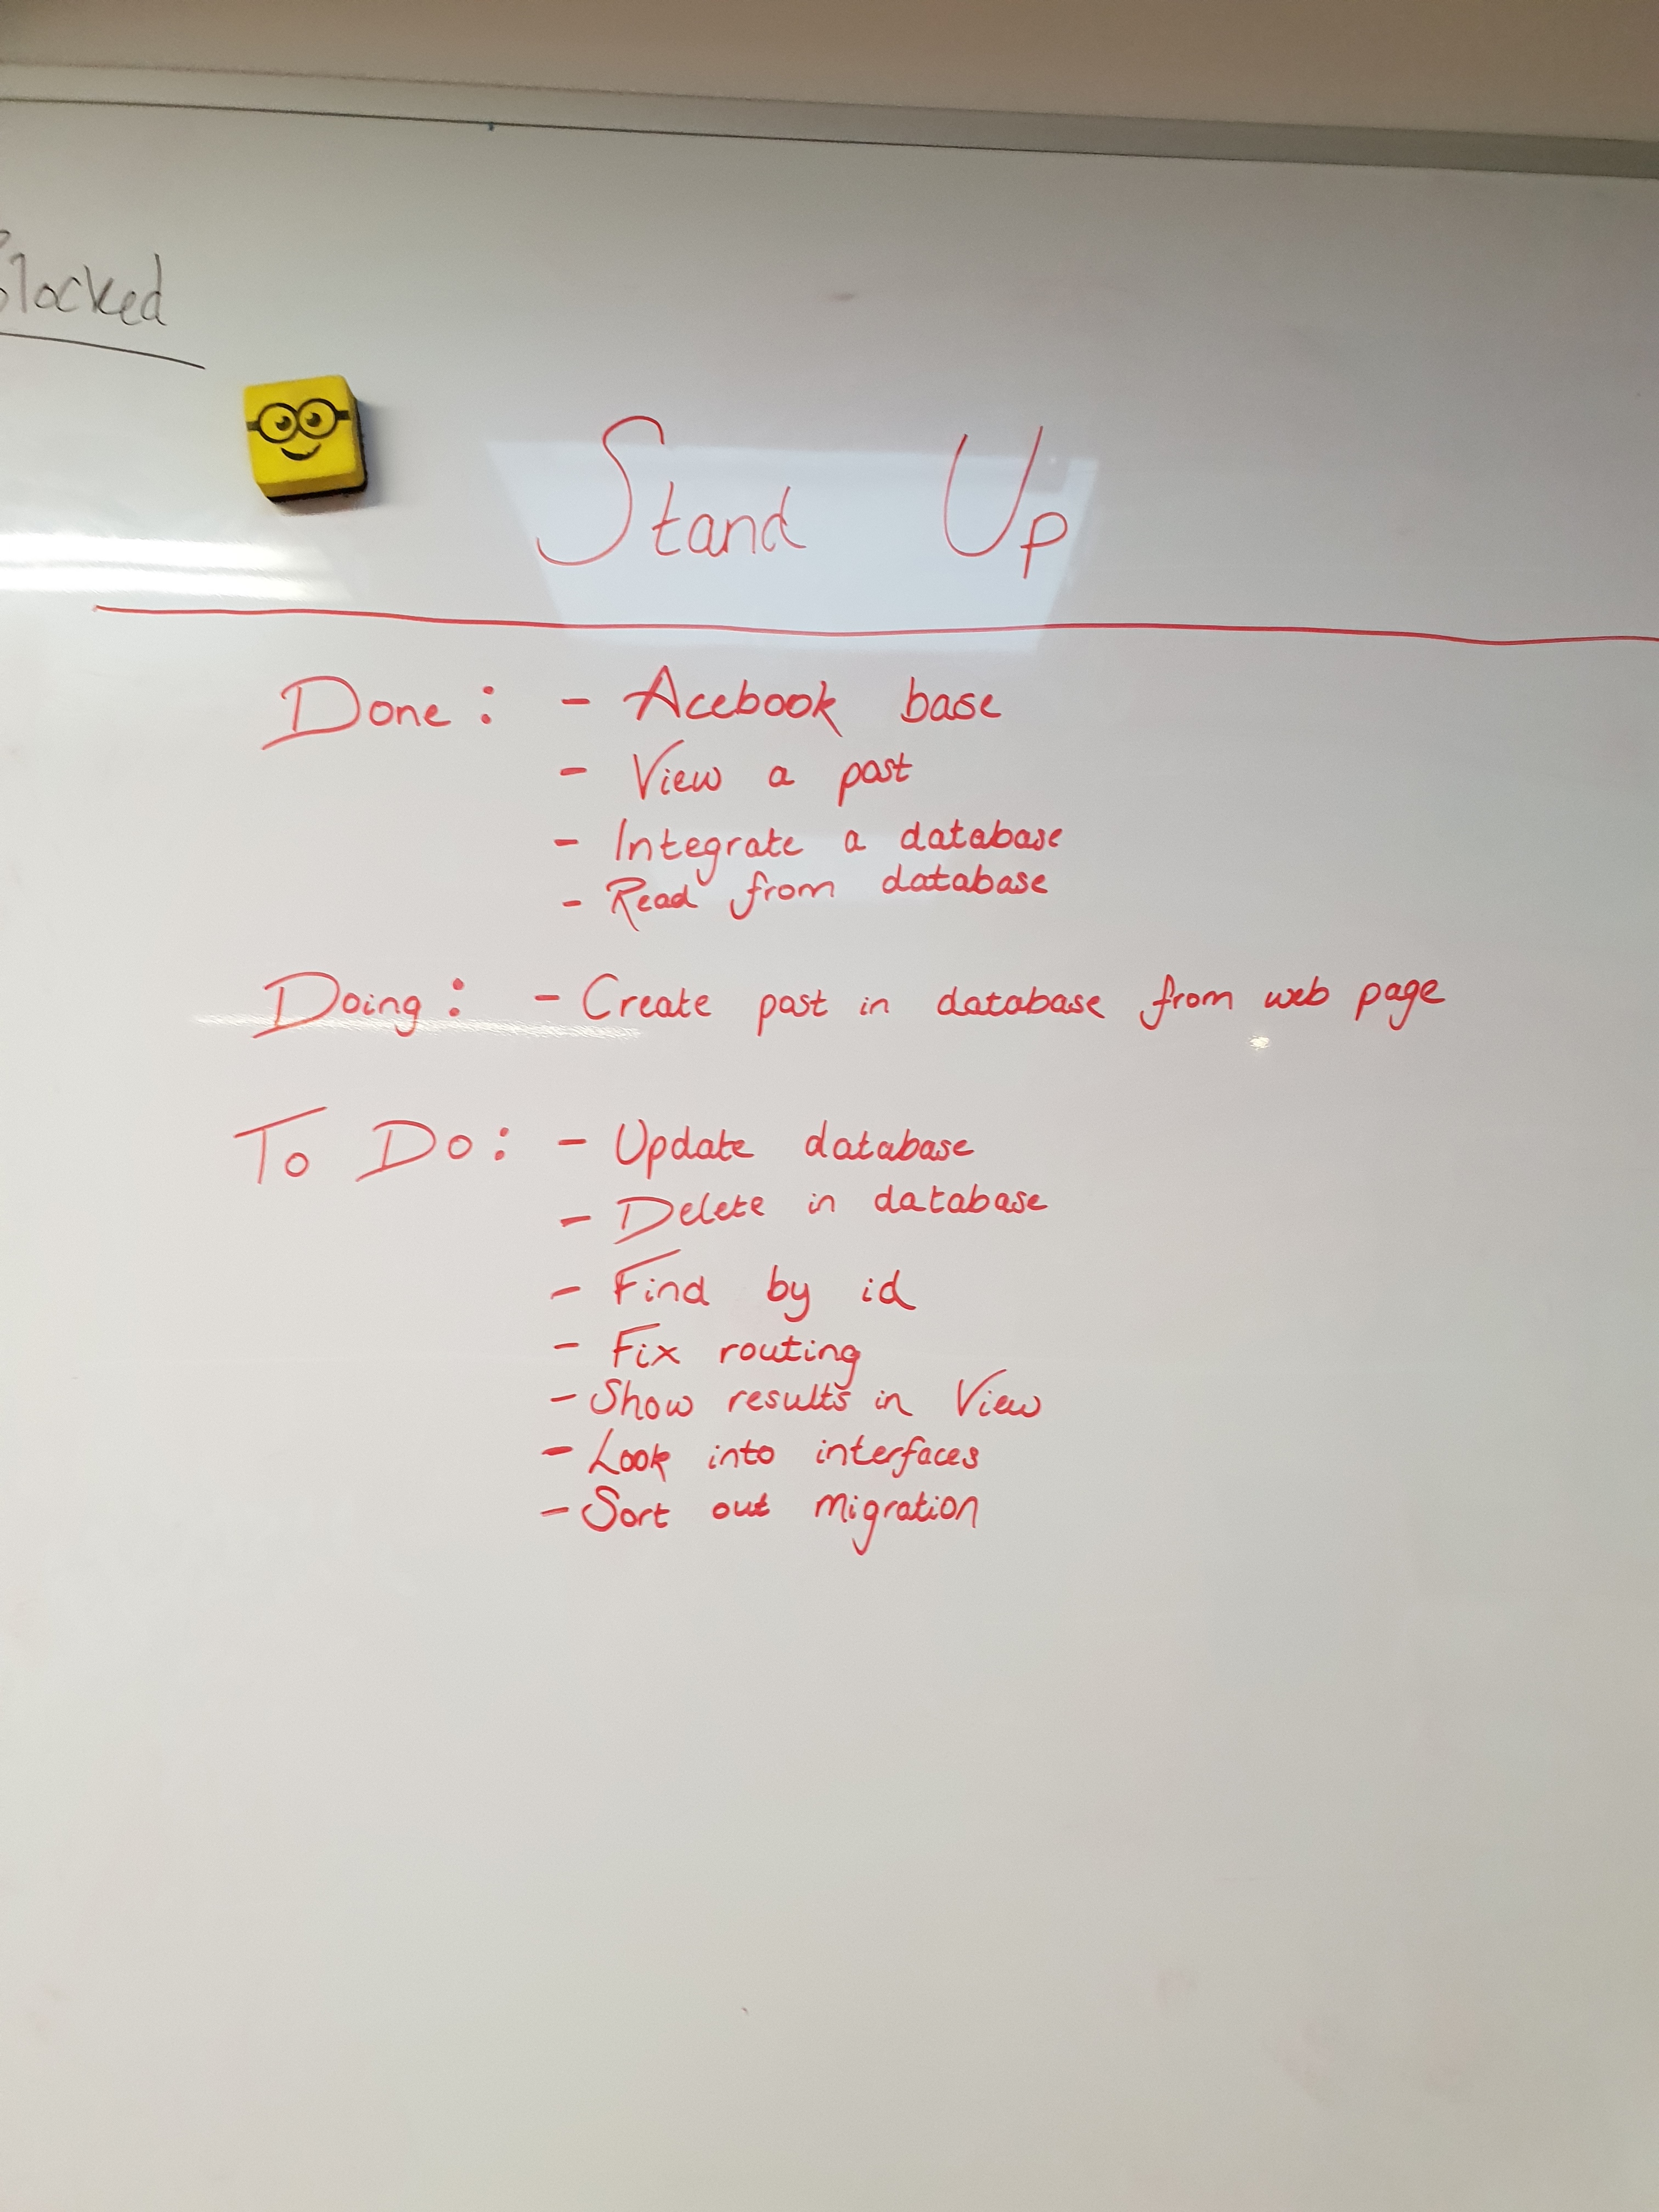 Blocked
Stand Up
Done: - Acebook base
- View a post
- Integrate a database
- Read from database
Doing: - Create post in database from web page
To Do: - Update database
- Delete in database
- Find by id
- Fix routing
- Show results in View
- Look into interfaces
- Sort out migration